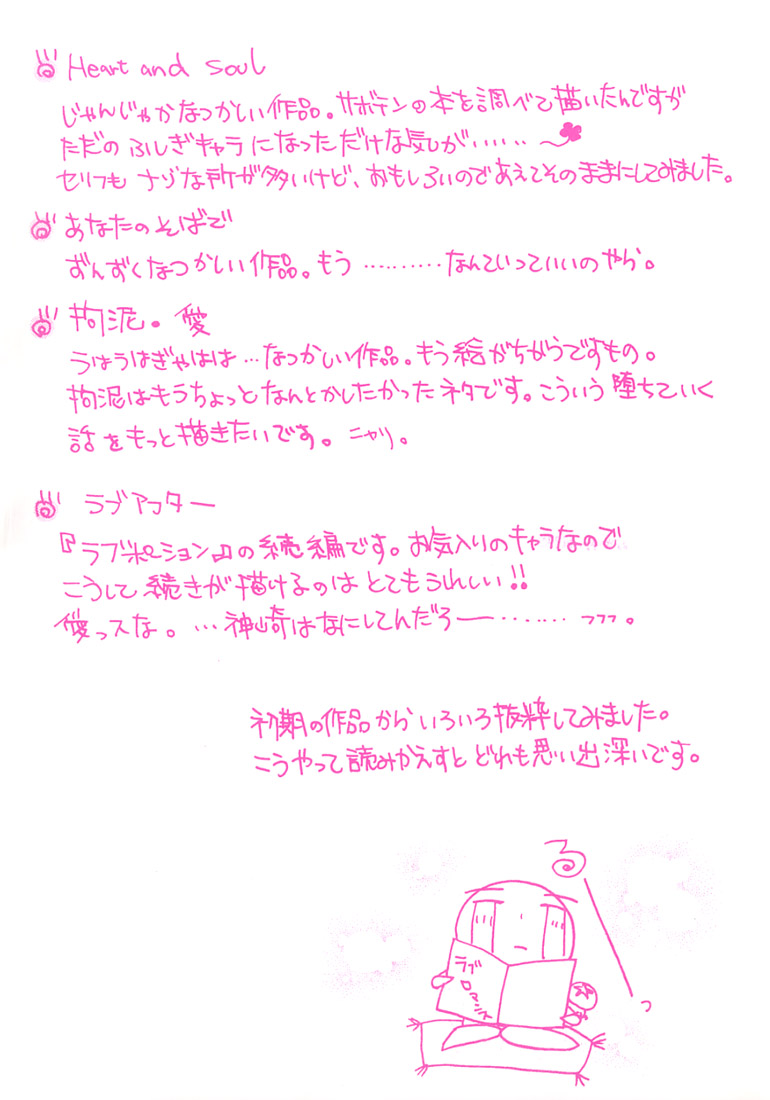 Heart and Soul
じゃんじゃかなつかしい作品。サボテンの本を調べて描いたんですが
ただのふしぎキャラになっただけな気が……
セリフもナゾな所が多いけど、おもしろいのであえてそのままにしてみました。
あなたのそばで
ずんずくなつかしい作品。もう………なんていっていいのやら。
拘泥。愛
うはうはぎゃはは…なつかしい作品。もう絵がちがうですもの。
拘泥はもうちょっとなんとかしたかったネタです。こういう堕ちていく
話をもっと描きたいです。ニヤリ。
ラブアフター
『ラブポーション』の続編です。お気入りのキャラなので
こうして続きが描けるのはとてもうれしい!!
愛っスな。…神崎はなにしてんだろー…… フフフ。
初期の作品からいろいろ抜粋してみました。
こうやって読みかえすとどれも思い出深いです。
ラブ